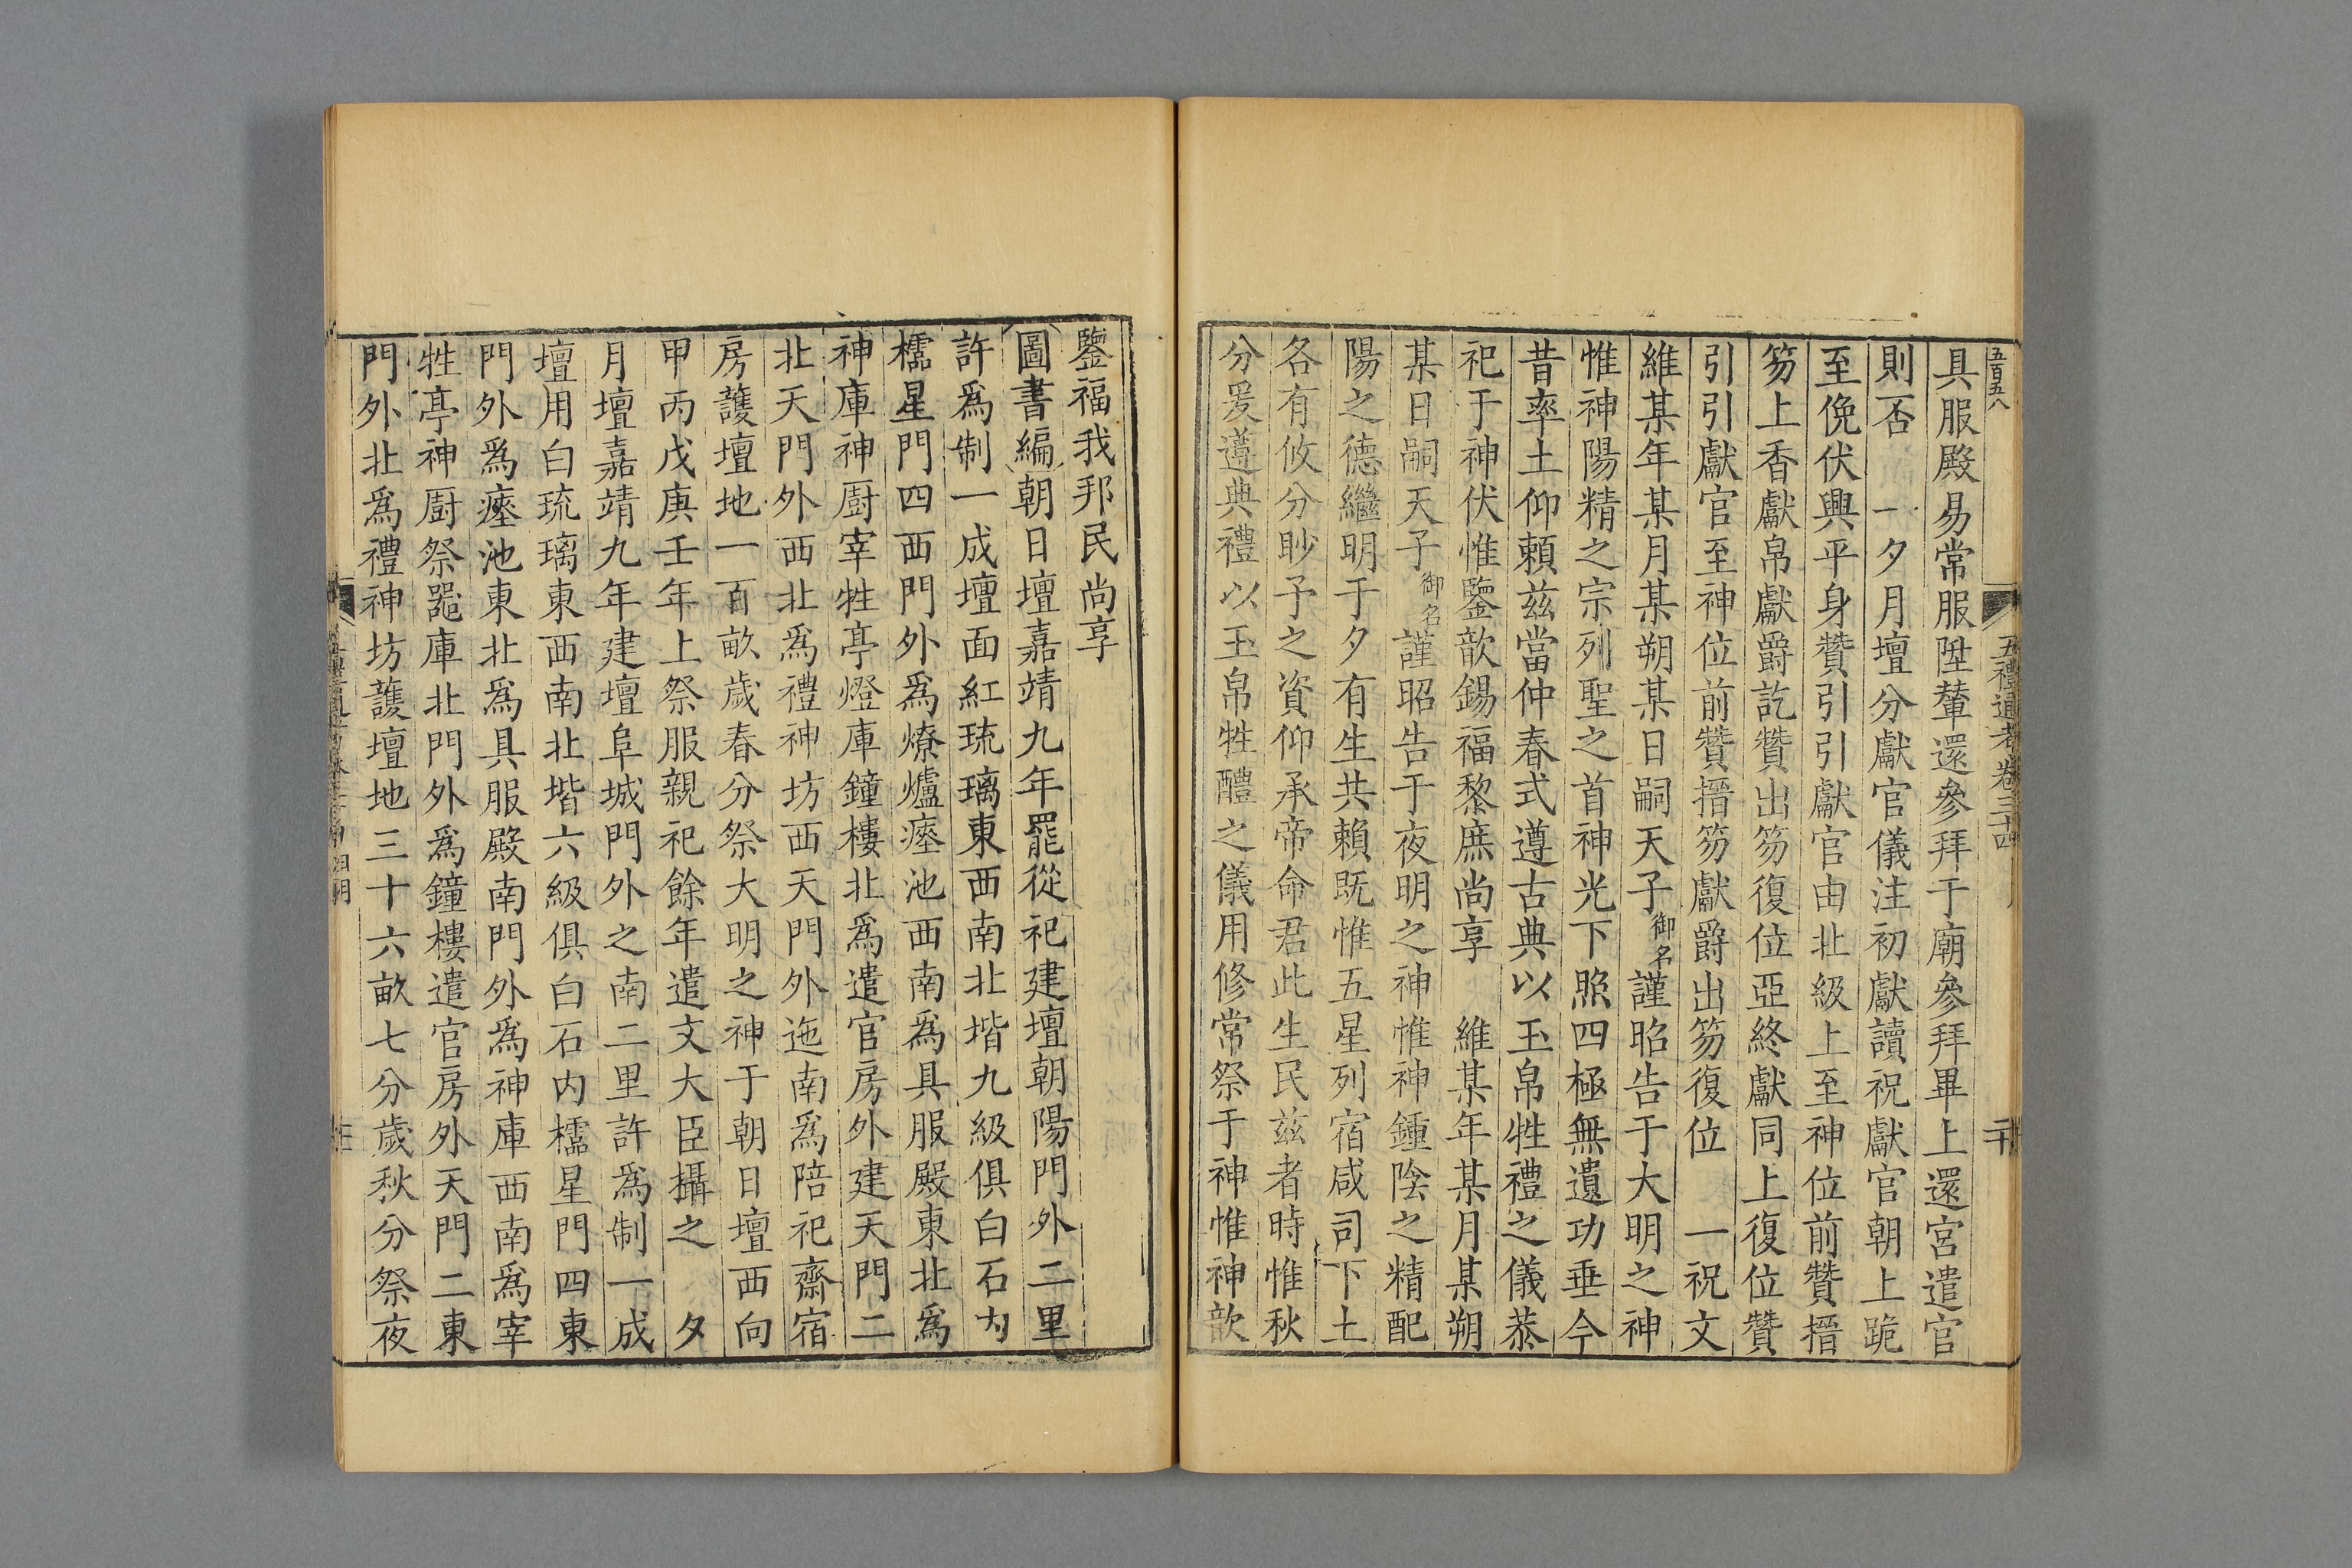 五百五八
五禮通考卷三十四
二十
具服殿易常服陞輦還參拜于廟參拜畢上還宮遣官
則否　一夕月壇分獻官儀注初獻讀祝獻官朝上跪
至俛伏興平身贊引引獻官由北級上至神位前贊搢
笏上香獻帛獻爵訖贊出笏復位亞終獻同上復位贊
引引獻官至神位前贊搢笏獻爵出笏復位　一祝文
維某年某月某朔某日嗣天子御名謹昭告于大明之神
惟神陽精之宗列聖之首神光下照四極無遺功垂今
昔率土仰賴茲當仲春式遵古典以玉帛牲禮之儀恭
祀于神伏惟鑒歆錫福黎庶尚享　維某年某月某朔
某日嗣天子御名謹昭告于夜明之神惟神鍾陰之精配
陽之德繼明于夕有生共賴既惟五星列宿咸司下土
各有攸分眇予之資仰承帝命君此生民茲者時惟秋
分爰遵典禮以玉帛牲醴之儀用修常祭于神惟神歆
鑒福我邦民尚享
圖書編朝日壇嘉靖九年罷從祀建壇朝陽門外二里
許爲制一成壇面紅琉璃東西南北堦九級俱白石內
櫺星門四西門外爲燎爐瘞池西南爲具服殿東北爲
神庫神厨宰牲亭燈庫鐘樓北爲遣官房外建天門二
北天門外西北爲禮神坊西天門外迤南爲陪祀齋宿
房護壇地一百畝歲春分祭大明之神于朝日壇西向
甲丙戊庚壬年上祭服親祀餘年遣文大臣攝之　夕
月壇嘉靖九年建壇阜城門外之南二里許爲制一成
壇用白琉璃東西南北堦六級俱白石內櫺星門四東
門外爲瘞池東北爲具服殿南門外爲神庫西南爲宰
牲亭神厨祭器庫北門外爲鐘樓遣官房外天門二東
門外北爲禮神坊護壇地三十六畝七分歲秋分祭夜